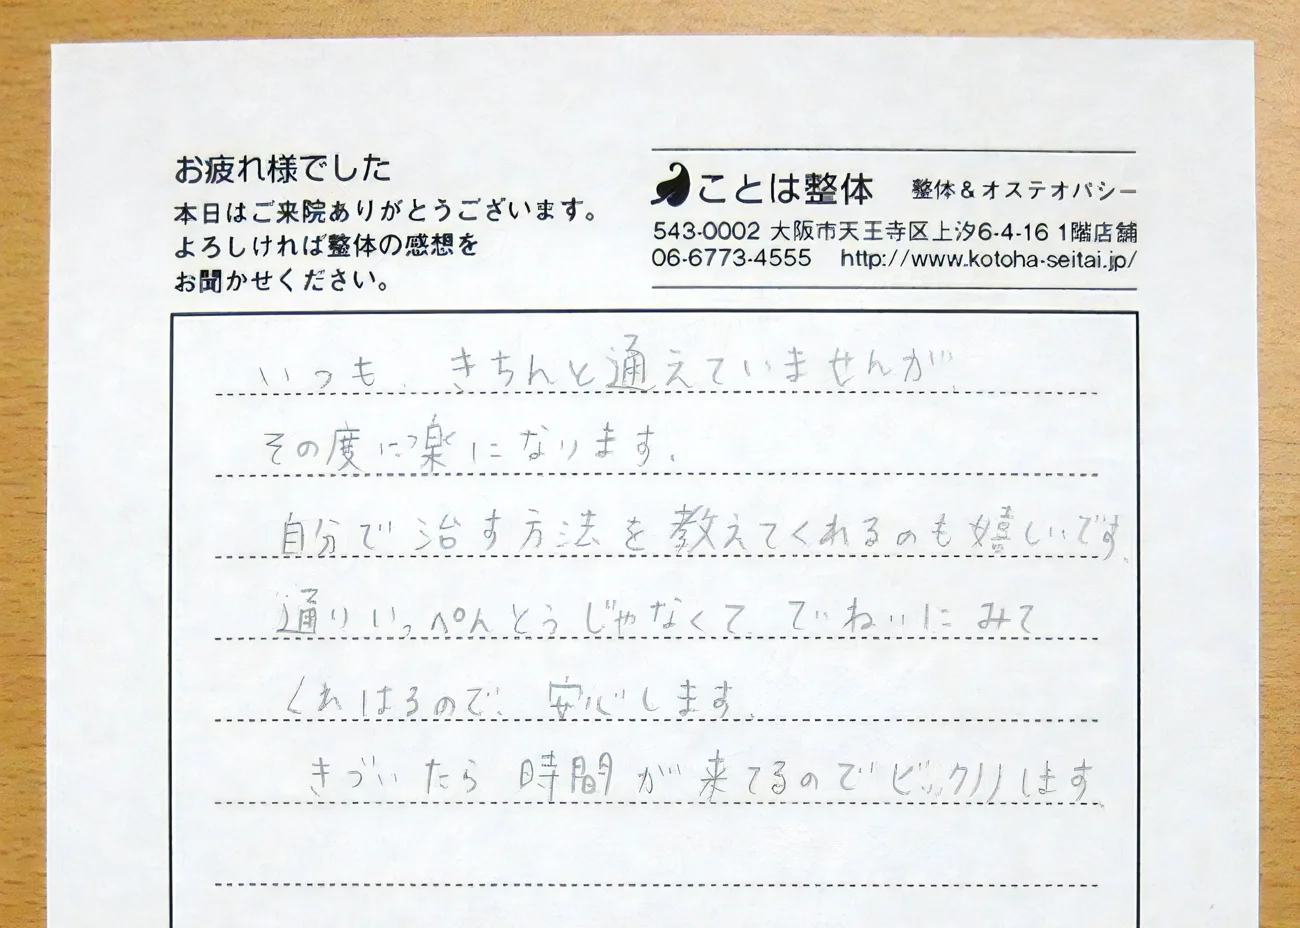 お疲れ様でした
本日はご来院ありがとうございます。
よろしければ整体の感想を
お聞かせください。
ことは整体 整体&オステオパシー
543-0002 大阪市天王寺区上汐6-4-16 1階店舗
06-6773-4555 http://www.kotoha-seitai.jp/
いつも、きちんと通えていませんが、
その度に楽になります。
自分で治す方法を教えてくれるのも嬉しいです。
通りいっぺんとうじゃなくて、ていねいにみて
くれはるので、安心します。
きづいたら時間が来てるのでビックリします。